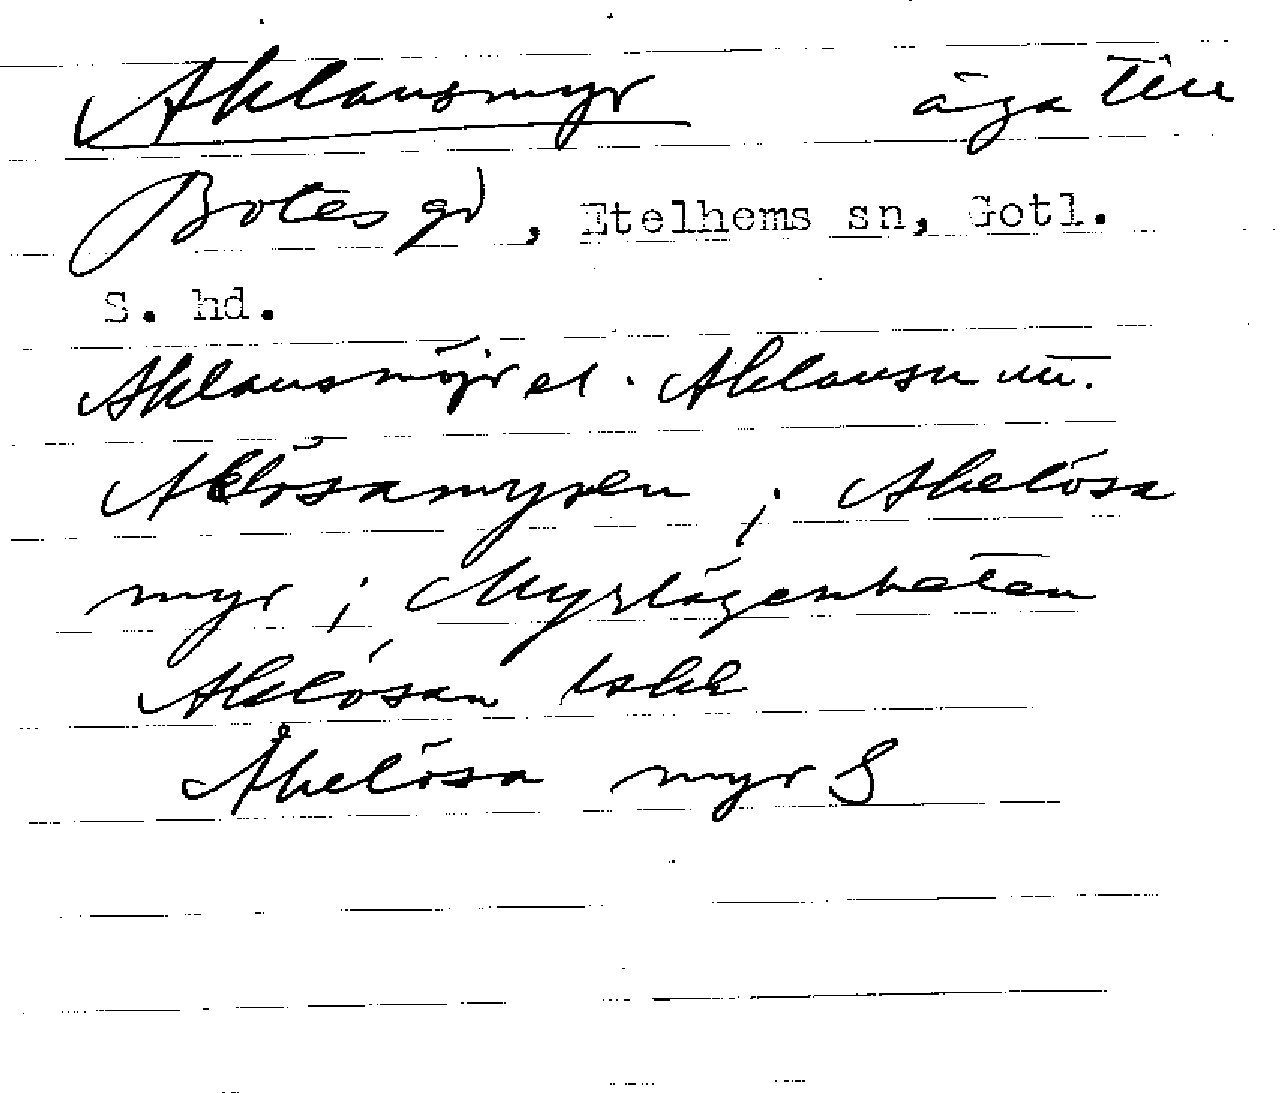 Aklausmyr äga till
Botes gd, Etelhems sn, Gotl.
S. hd.
Aklausmöjr el. Aklausu
Aklösamyren ; Akelösa
myr ; Myrlägenheten
Aklösan
Åkelösa myr S